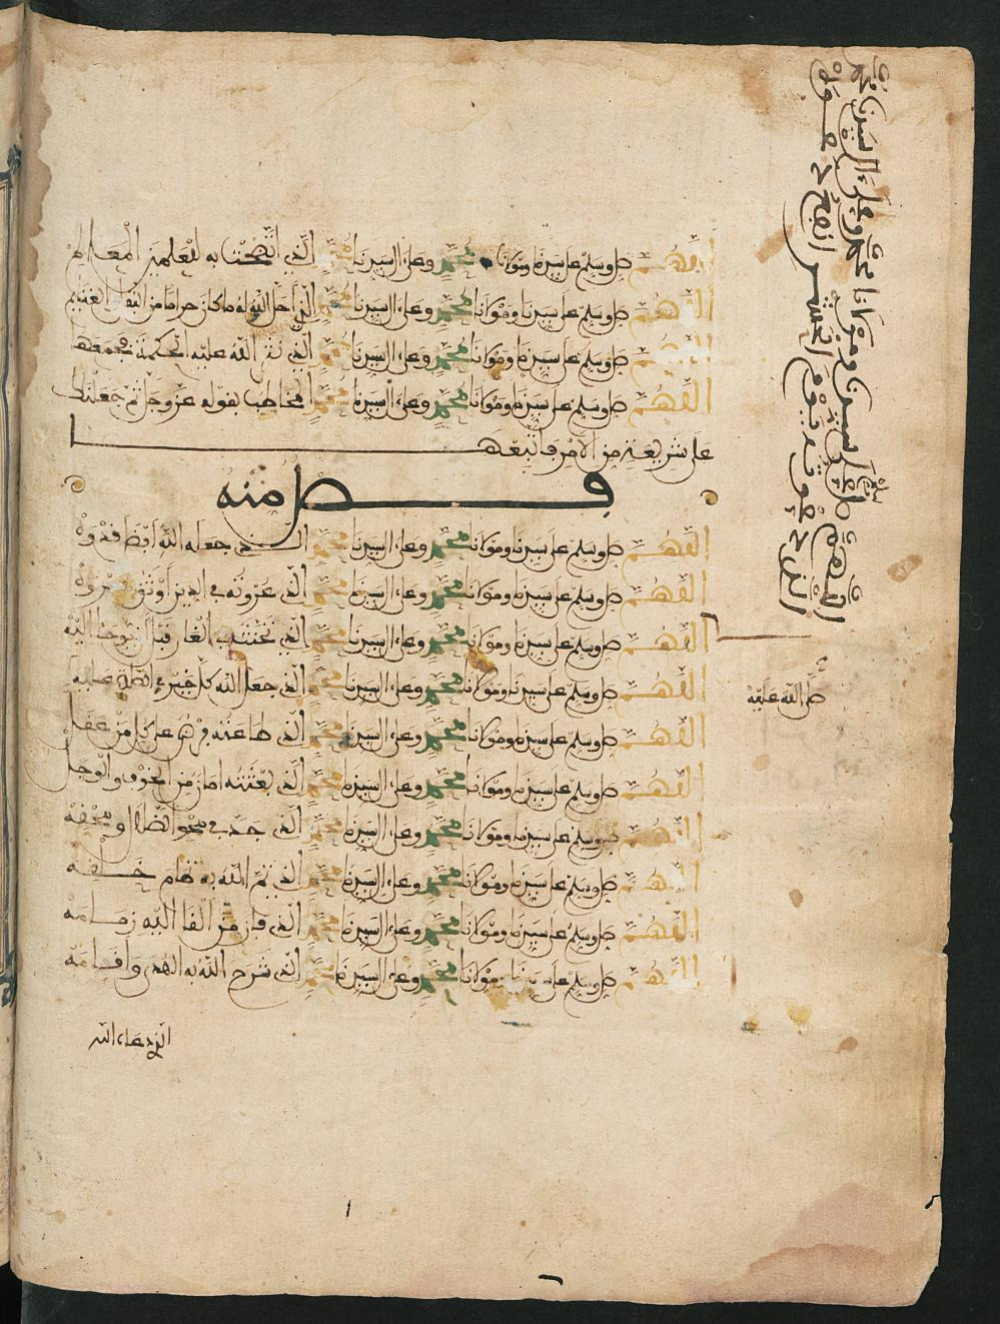 اللهم صل وسلم على سيدنا ومولانا محمد وعلى آل سيدنا محمد الذي اتضحت به للعلمين المعالم
اللهم صل وسلم على سيدنا ومولانا محمد وعلى آل سيدنا محمد الذي أحل الله له ما كان حراما من
اللهم صل وسلم على سيدنا ومولانا محمد وعلى آل سيدنا محمد الذي الله عليه الحكمة
اللهم صل وسلم على سيدنا ومولانا محمد وعلى آل سيدنا محمد المخاطب بقوله عز وجل ثم جعلناك
على شريعة من الأمر فاتبعها
فصل منه
اللهم صل وسلم على سيدنا ومولانا محمد وعلى آل سيدنا محمد الذي جعله الله أفضل قدوة
اللهم صل وسلم على سيدنا ومولانا محمد وعلى آل سيدنا محمد الذي عروته في الدين أوثق عروة
اللهم صل وسلم على سيدنا ومولانا محمد وعلى آل سيدنا محمد الذي الغار قبل أن يوحى إليه
اللهم صل وسلم على سيدنا ومولانا محمد وعلى آل سيدنا محمد الذي جعل الله كل خير في الصلاة عليه
اللهم صل وسلم على سيدنا ومولانا محمد وعلى آل سيدنا محمد الذي طاعته فرض على كل من عقل
اللهم صل وسلم على سيدنا ومولانا محمد وعلى آل سيدنا محمد الذي بعثته أمان من الخوف والوجل
اللهم صل وسلم على سيدنا ومولانا محمد وعلى آل سيدنا محمد الذي جد في محو الضلال ومحقه
اللهم صل وسلم على سيدنا ومولانا محمد وعلى آل سيدنا محمد الذي الله به نظام خلقه
اللهم صل وسلم على سيدنا ومولانا محمد وعلى آل سيدنا محمد الذي فاز من ألقا إليه زمامه
اللهم صل وسلم على سيدنا ومولانا محمد وعلى آل سيدنا محمد الذي شرح الله به الهدى وأقامه
الذي دعاء الله
اللهم صل وسلم على سيدنا ومولانا محمد وعلى آل سيدنا محمد
الذي
صلى الله عليه